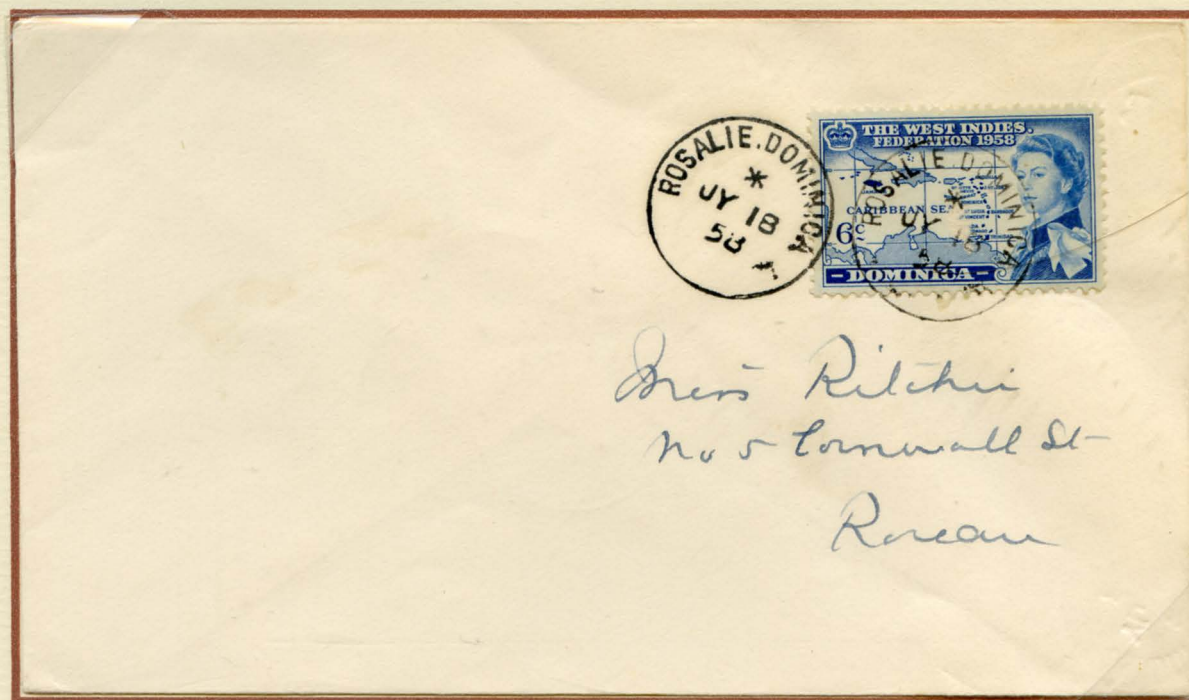 ROSALIE.DOMINICA
*
JY 18
58
THE WEST INDIES.
FEDERATION 1958
CARIBBEAN SEA
6c
DOMINICA
ROSALIE.DOMINICA
*
JY 18
58
Miss Ritchie
No 5 Cornwall St
Roseau